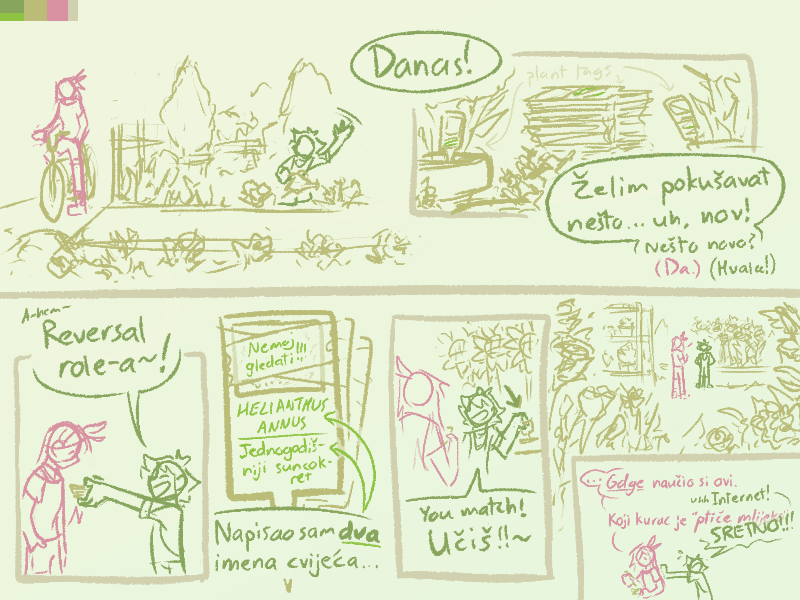 Danas!
plant tags
Želim pokušavat
nešto... uh, nov!
Nešto novo?
(Da.) (Hvala!)
A-hem~
Reversal
role-a~!
Nemej!!!
gledati!!
HELIANTHUS
ANNUS
Jednogodiš-
nji suncok-
ret
Napisao sam dva
imena cvijeća...
You match!
Učiš!!~
... Gdge naučio si ovi.
ushInternet!
Koji kurac je "ptiče mlijeko
SRETNO!!!